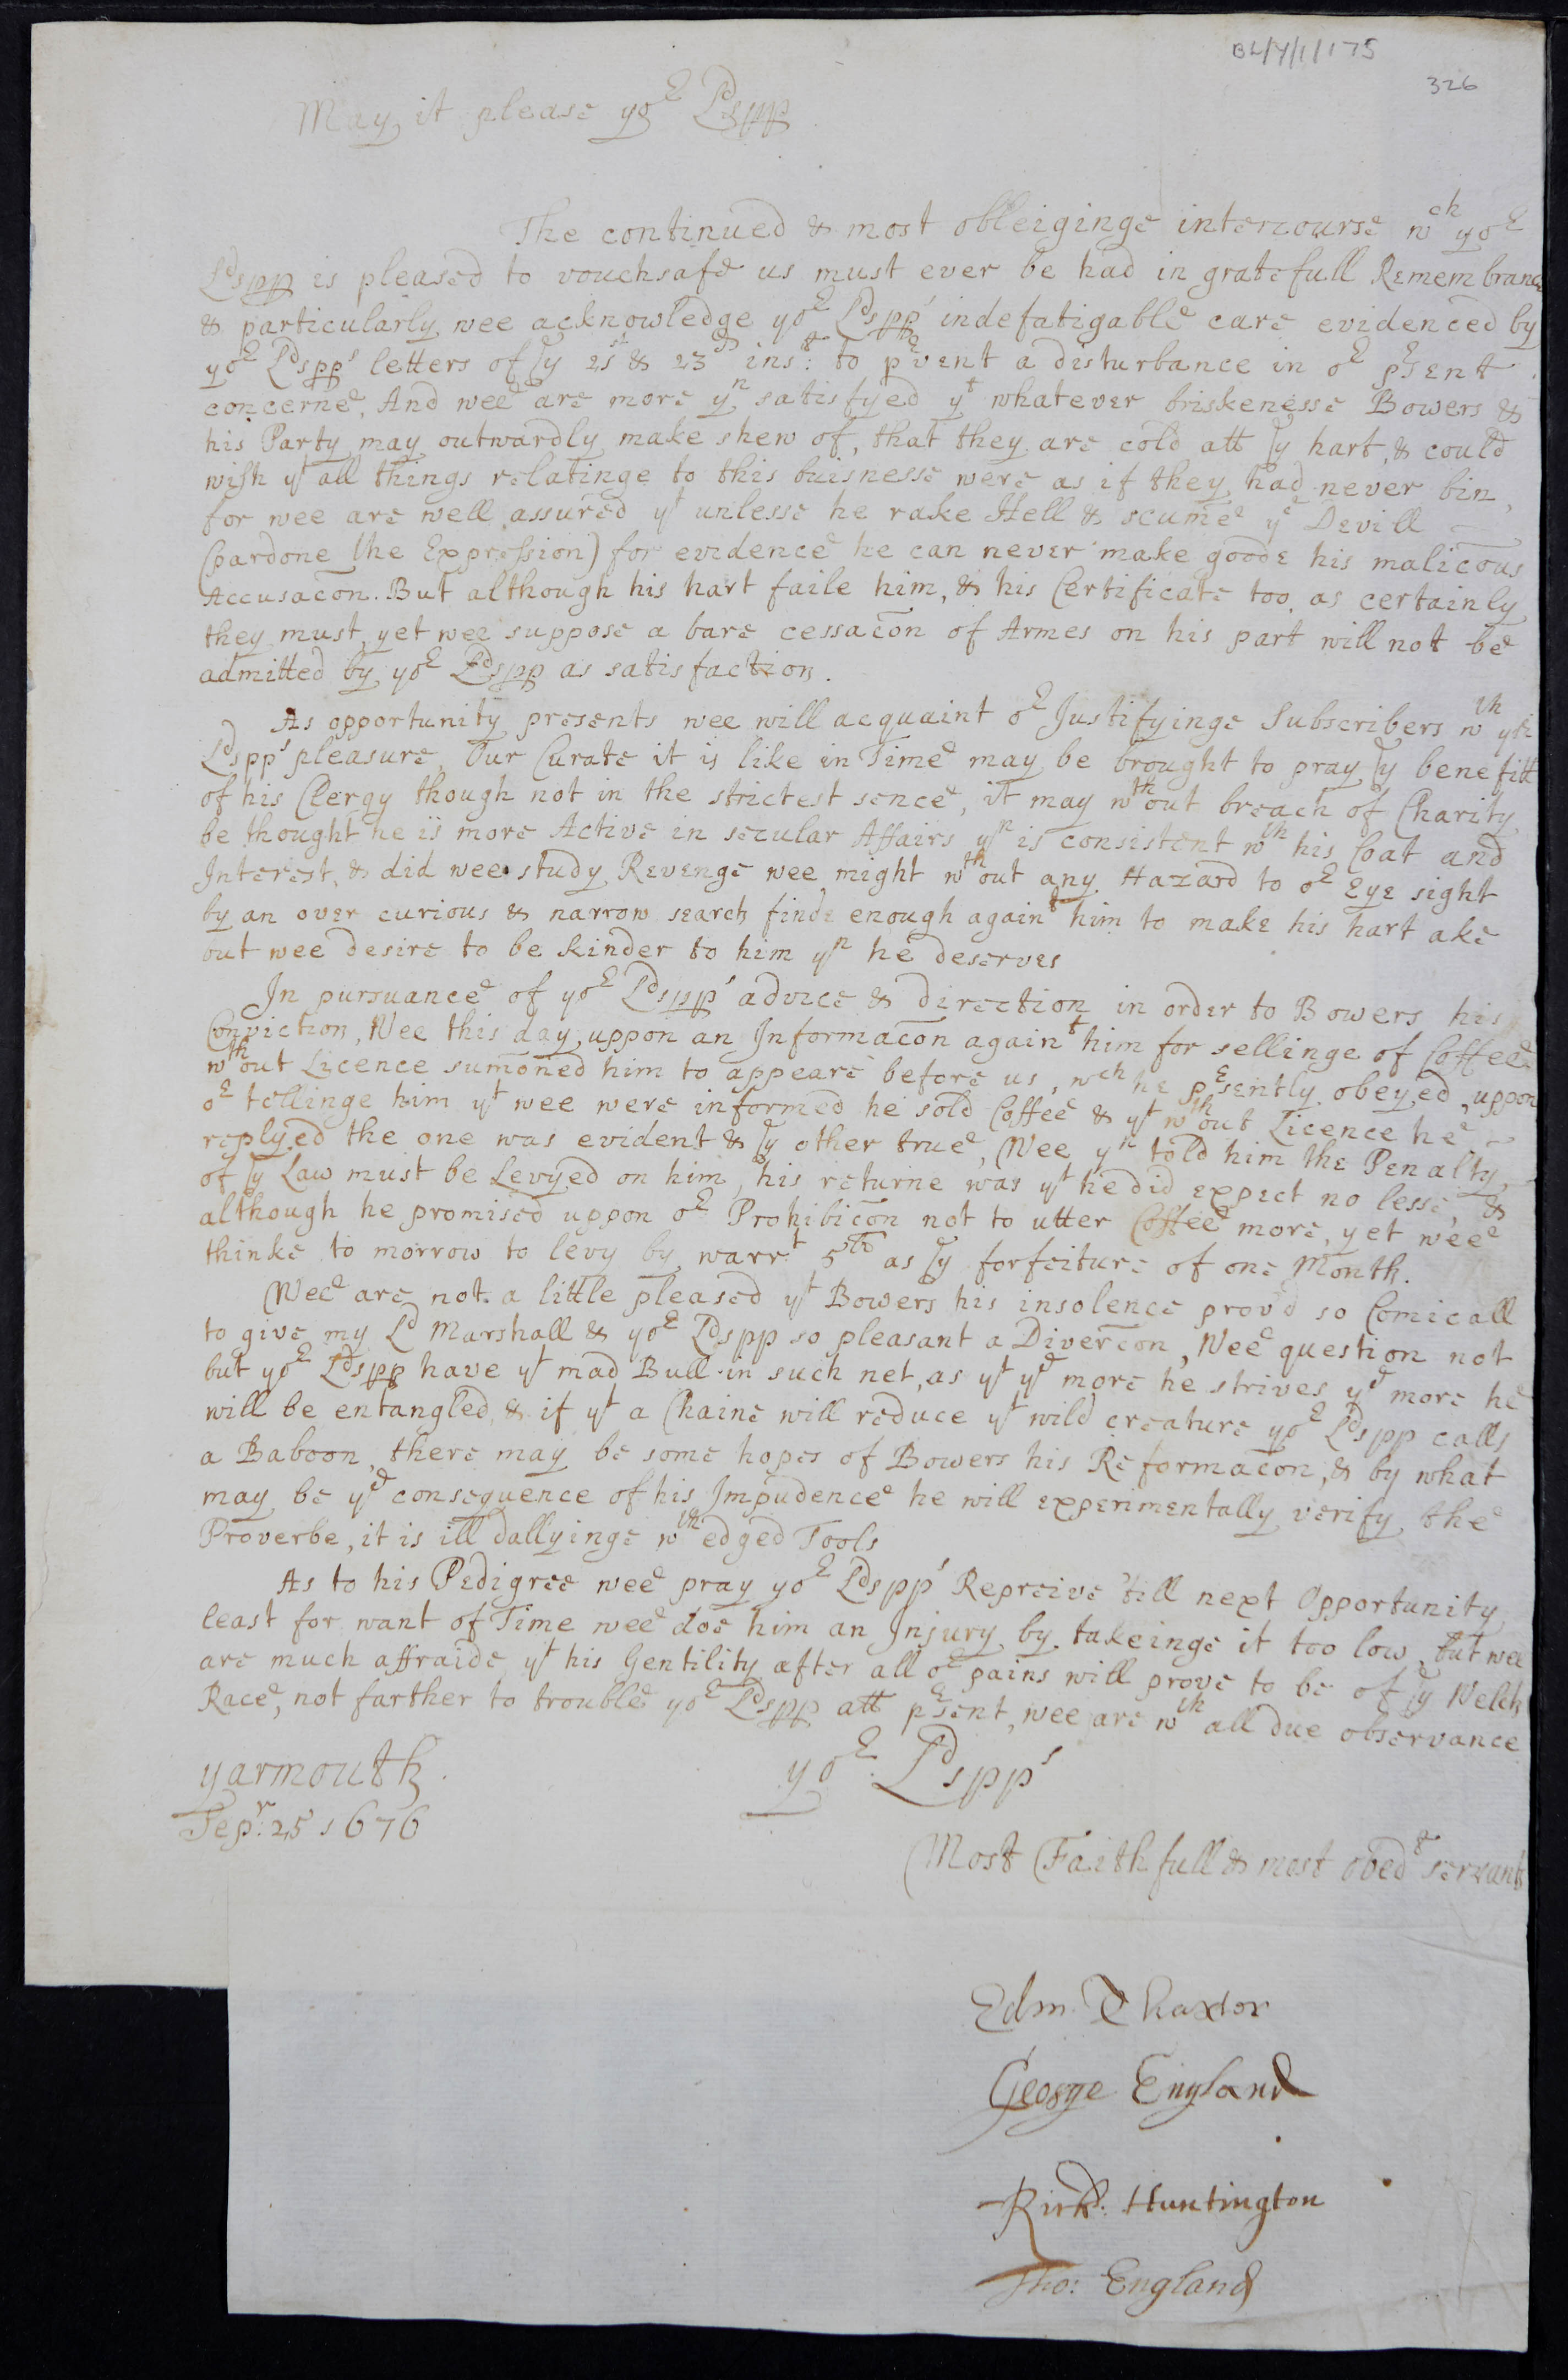 BL/Y/1/175
326
May it please yor Ldspp
The continued & most obleiginge intercourse wch yor
Ldspp is pleased to vouchsafe us must ever be had in gratefull Remembrance
& particularly wee acknowledge yor Ldspps indefatigable care evidenced by
yor Ldspps letters of ye 21st & 23th inst: to prvent a disturbance in or prsent
concerne, And wee are more yn satisfyed yt whatever briskenesse Bowers &
his Party may outwardly make shew of, that they are cold att ye hart, & could
wish yt all things relatinge to this buisnesse were as if they had never bin,
for wee are well assured yt unlesse he rake Hell & scume ye Devill
(pardone the Expression) for evidence he can never make goode his malicous
Accusacōn. But although his hart faile him, & his Certificate too, as certainly
they must, yet wee suppose a bare cessacōn of Armes on his part will not be
admitted by yor Ldspp as satisfaction.
As opportunity presents wee will acquaint or Justifyinge Subscribers wth yor
Ldspps pleasure, Our Curate it is like in Time may be brought to pray ye benefitt
of his Clergy though not in the strictest sence, it may wthout breach of Charity
be thought he is more Active in secular Affairs yn is consistent wth his Coat and
Interest, & did wee study Revenge wee might wthout any Hazard to or Eye sight
by an over curious & narrow search finde enough againt him to make his hart ake
but wee desire to be kinder to him yn he deserves
In pursuance of yor Ldspps advice & direction in order to Bowers his
Conviction, Wee this day uppon an Informacōn againt him for sellinge of Coffee
wthout Licence sum̄oned him to appeare before us, wch he prsently obeyed, uppon
or tellinge him yt wee were informed he sold Coffee & yt wthout Licence he
replyed the one was evident & ye other true, Wee yn told him the Penalty
of ye Law must be Levyed on him, his returne was yt he did expect no lesse, &
although he promised uppon or Prohibicōn not to utter Coffee more, yet wee
thinke to morrow to levy by warrt 5ld as ye forfeiture of one Month.
Wee are not a little pleased yt Bowers his insolence prov'd so Comicall
to give my Ld Marshall & yor Ldspp so pleasant a Divercōn, Wee question not
but yor Ldspp have yt mad Bull in such net, as yt ye more he strives ye more he
will be entangled, & if yt a Chaine will reduce yt wild creature yor Ldspp calls
a Baboon, there may be some hopes of Bowers his Reformacōn, & by what
may be ye consequence of his Impudence he will experimentally verify the
Proverbe, it is ill dallyinge wth edged Tools
As to his Pedigree wee pray yor Ldspps Repreive 'till next Opportunity
least for want of Time wee doe him an Injury by takeinge it too low, but wee
are much affraide yt his Gentility after all or pains will prove to be of ye Welch
Race, not farther to trouble yor Ldspp att prsent, wee are wth all due observance
yarmouth
yor Ldspps
Sepr: 25 1676
Most Faithfull & most obedt servants
Edm Thaxter
George England
Richd: Huntington
Tho: England